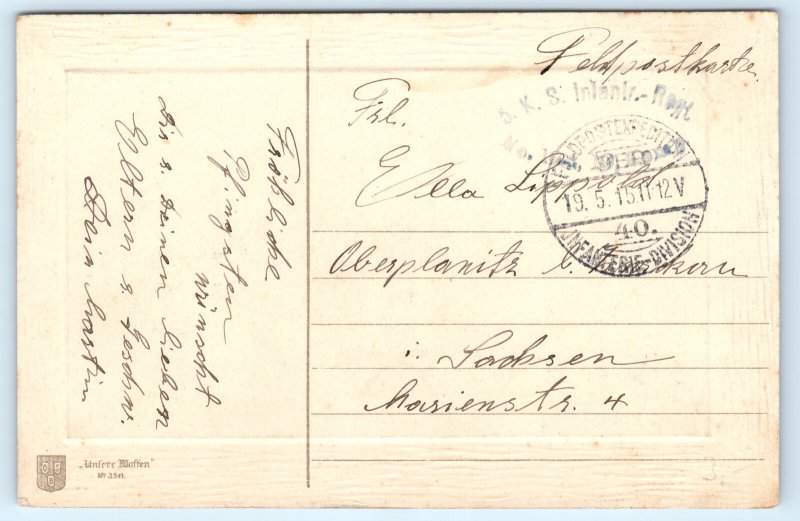 Feldpostkarte.
5. K. S. Infantr.-Regt
No.
FELDPOSTEXPEDITION
19.5.15 11-12V
40.
INFANTERIE-DIVISION
Frl.
Ella Lippold
Oberplanitz b. Zwickau
i. Sachsen
Marienstr. 4
Fröhliche
Pfingsten
wünscht
Dir u. Deinen lieben
Eltern u. Geschw.
Dein Martin
„Unsere Waffen"